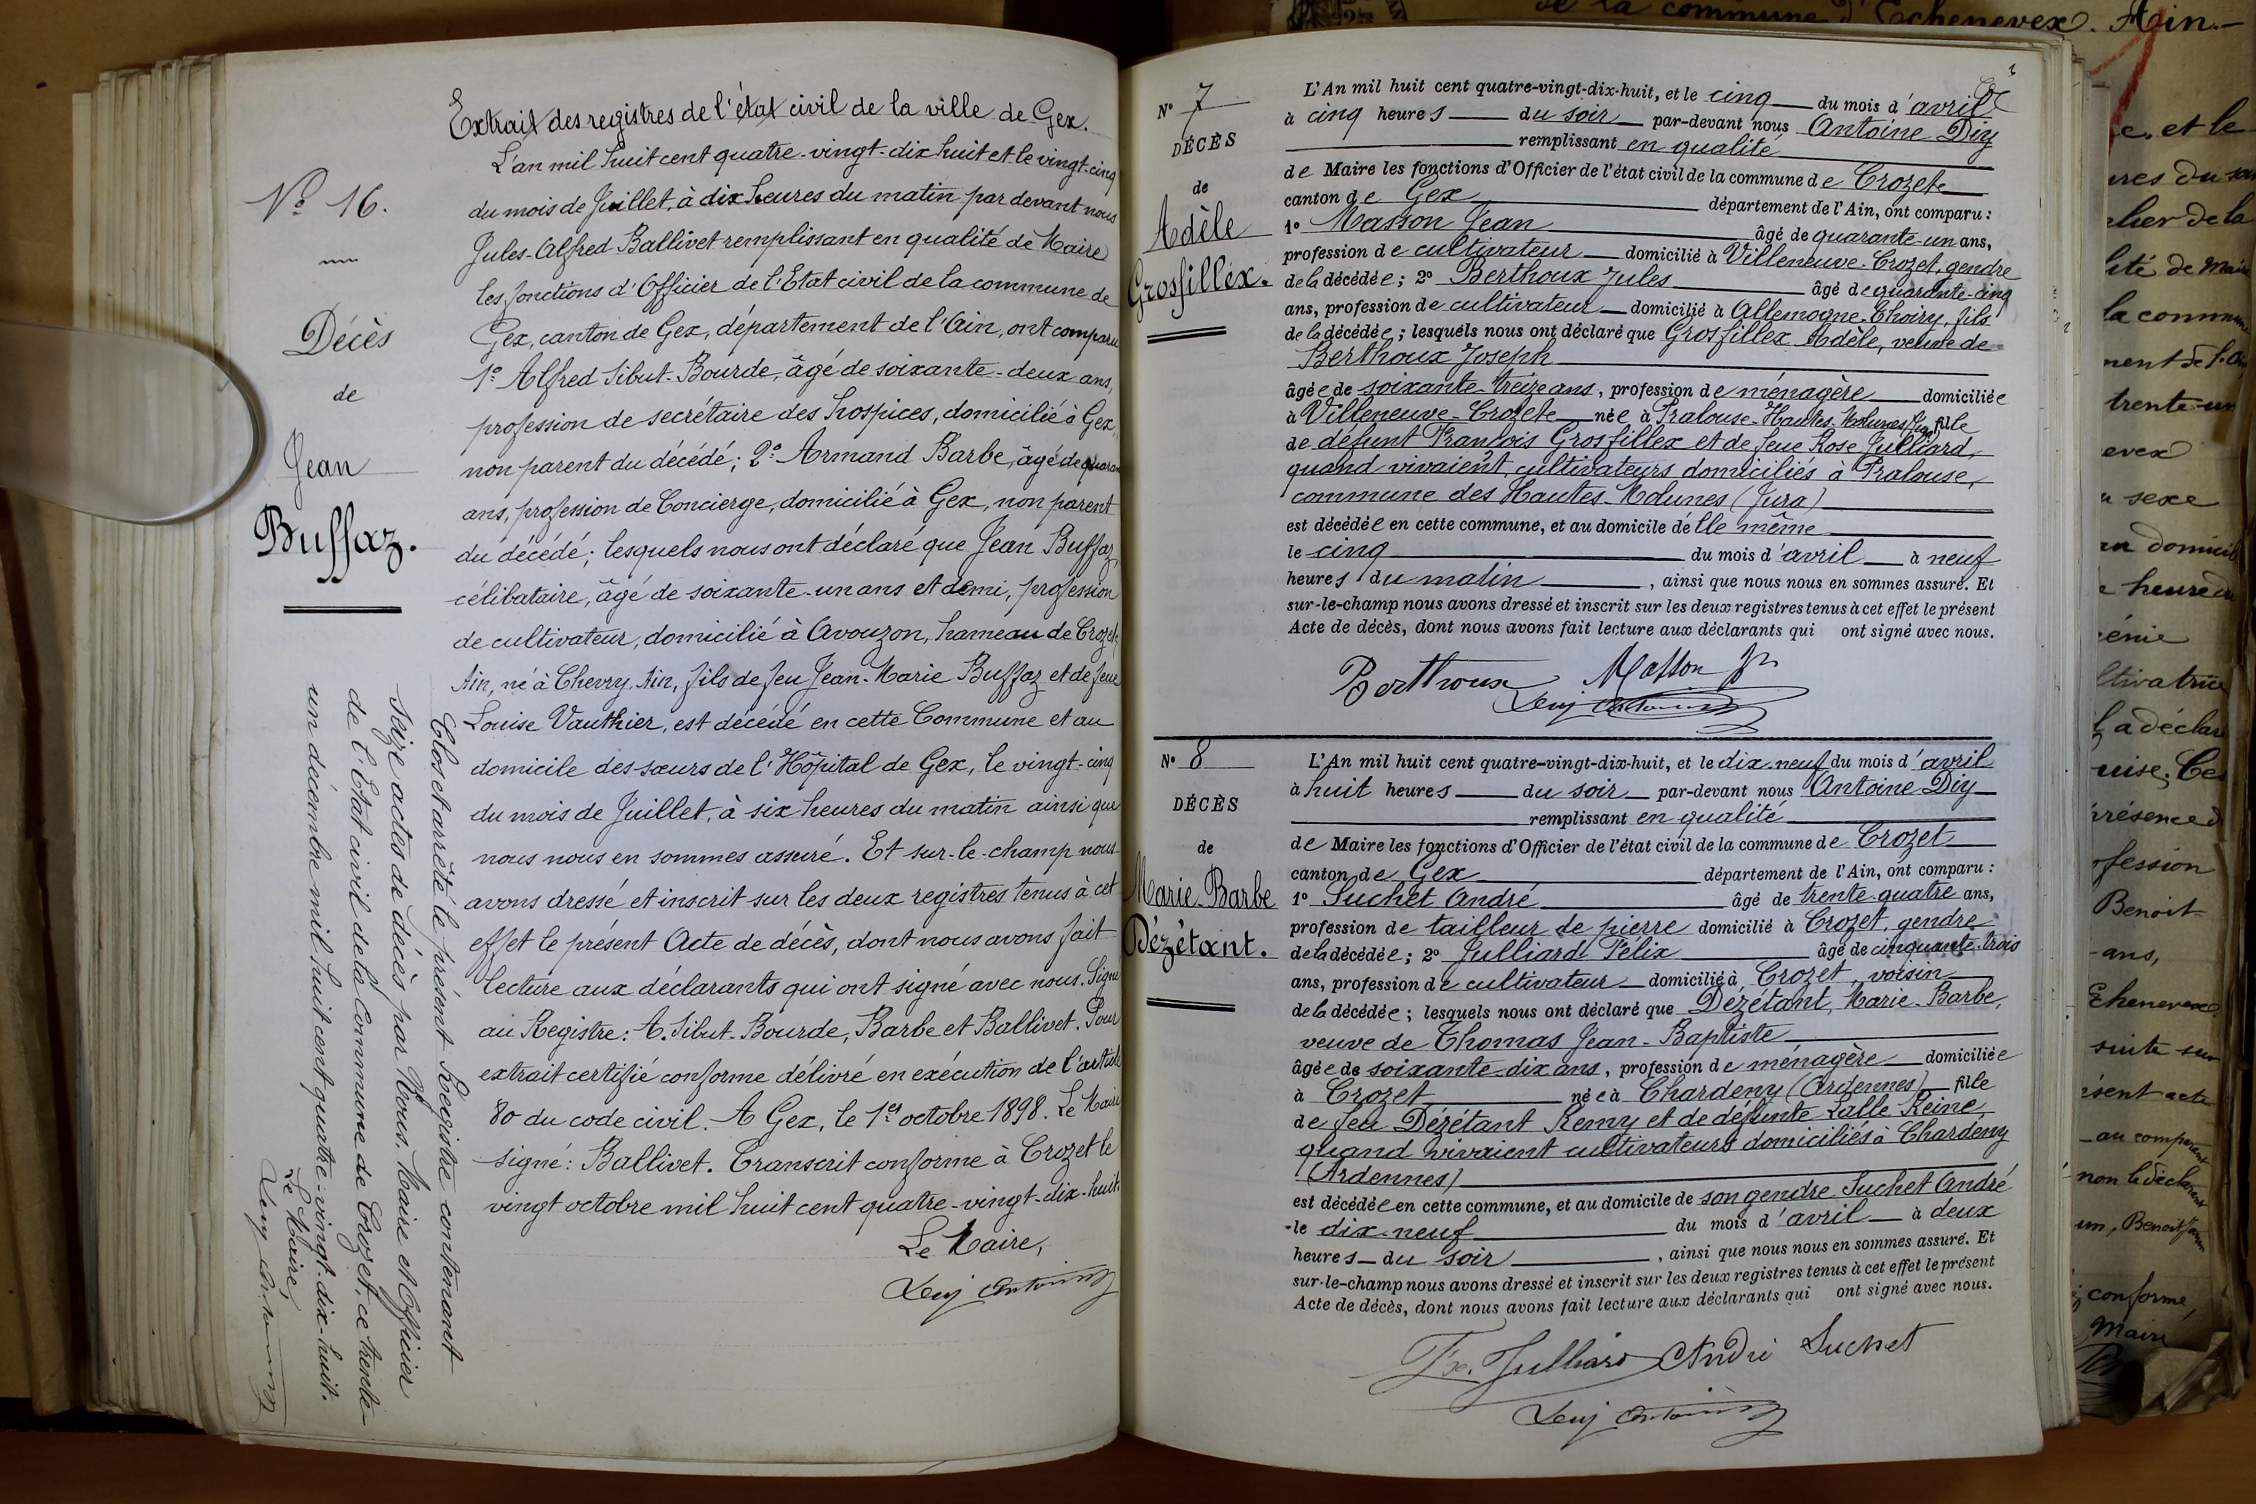 Extrait des registres de l'état civil de la ville de Gex.
N° 16.
Décès
de
Jean
Buffaz.
L'an mil huit cent quatre-vingt-dix huit et le vingt-cinq
du mois de Juillet, à dix heures du matin par devant nous
Jules-Alfred Ballivet remplissant en qualité de Maire
les fonctions d'Officier de l'Etat civil de la commune de
Gex, canton de Gex, département de l'Ain, ont comparu
1° Alfred Sibut-Bourde, âgé de soixante-deux ans,
profession de secrétaire des hospices, domicilié à Gex,
non parent du décédé; 2° Armand Barbe, âgé de quaran
ans, profession de Concierge, domicilié à Gex, non parent
du décédé; lesquels nous ont déclaré que Jean Buffaz,
célibataire, âgé de soixante-un ans et demi, profession
de cultivateur, domicilié à Avouzon, hameau de Crozet,
Ain, né à Chevry, Ain, fils de feu Jean-Marie Buffaz et de feue
Louise Vauthier, est décédé en cette Commune et au
domicile des sœurs de l'Hôpital de Gex, le vingt-cinq
du mois de Juillet, à six heures du matin ainsi que
nous nous en sommes assuré. Et sur-le-champ nous
avons dressé et inscrit sur les deux registres tenus à cet
effet le présent Acte de décès, dont nous avons fait
lecture aux déclarants qui ont signé avec nous. Signé
au Registre: A. Sibut-Bourde, Barbe et Ballivet. Pour
extrait certifié conforme délivré en exécution de l'article
80 du code civil. A Gex, le 1er octobre 1898. Le Maire
signé: Ballivet. Transcrit conforme à Crozet le
vingt octobre mil huit cent quatre-vingt-dix-huit.
Le Maire,
Diy Antoine
Clos et arrêté le présent Registre contenant
seize actes de décès par Nous, Maire et Officier
de l'Etat civil de la Commune de Crozet, ce trente-
un décembre mil huit cent quatre-vingt-dix-huit.
Le Maire,
Diy Antoine
N° 7
DÉCÈS
de
Adèle
Grosfillex.
L'An mil huit cent quatre-vingt-dix-huit, et le cinq du mois d'avril
à cinq heures du soir par-devant nous Antoine Diy
remplissant en qualité
de Maire les fonctions d'Officier de l'état civil de la commune de Crozet
canton de Gex département de l'Ain, ont comparu :
1° Masson Jean âgé de quarante-un ans,
profession de cultivateur domicilié à Villeneuve-Crozet, gendre
de la décédée; 2° Berthoux Jules âgé de quarante-cinq
ans, profession de cultivateur domicilié à Allemogne-Thoiry, fils
de la décédée; lesquels nous ont déclaré que Grosfillex Adèle, veuve de
Berthoux Joseph
âgée de soixante-treize ans, profession de ménagère domiciliée
à Villeneuve-Crozet née à Pralouse-Hautes-Molunes (Jura) fille
de défunt François Grosfillex et de feue Rose Julliard,
quand vivaient, cultivateurs domiciliés à Pralouse,
commune des Hautes-Molunes (Jura)
est décédée en cette commune, et au domicile d'elle même
le cinq du mois d'avril à neuf
heures du matin, ainsi que nous nous en sommes assuré. Et
sur-le-champ nous avons dressé et inscrit sur les deux registres tenus à cet effet le présent
Acte de décès, dont nous avons fait lecture aux déclarants qui ont signé avec nous.
Berthoux Masson Jn
Diy Antoine
N° 8
DÉCÈS
de
Marie-Barbe
Dézétant.
L'An mil huit cent quatre-vingt-dix-huit, et le dix-neuf du mois d'avril
à huit heures du soir par-devant nous Antoine Diy
remplissant en qualité
de Maire les fonctions d'Officier de l'état civil de la commune de Crozet
canton de Gex département de l'Ain, ont comparu :
1° Suchet André âgé de trente-quatre ans,
profession de tailleur de pierre domicilié à Crozet, gendre
de la décédée; 2° Julliard Félix âgé de cinquante-trois
ans, profession de cultivateur domicilié à Crozet, voisin
de la décédée; lesquels nous ont déclaré que Dézétant, Marie-Barbe,
veuve de Thomas Jean-Baptiste
âgée de soixante-dix ans, profession de ménagère domiciliée
à Crozet née à Chardeny (Ardennes) fille
de feu Dézétant Remy et de défunte Lallé Reine,
quand vivaient cultivateurs domiciliés à Chardeny
(Ardennes)
est décédée en cette commune, et au domicile de son gendre Suchet André
le dix-neuf du mois d'avril à deux
heures du soir, ainsi que nous nous en sommes assuré. Et
sur-le-champ nous avons dressé et inscrit sur les deux registres tenus à cet effet le présent
Acte de décès, dont nous avons fait lecture aux déclarants qui ont signé avec nous.
Fx. Julliard André Suchet
Diy Antoine
de la commune d'Echenevex. Ain.
e, et le
la commune
trente-un
evex
sexe
heure du
a déclaré
présence d
ofession
Benoit
ans,
Echenevex
suite sur
ésent acte
au comparant
non le déclarant
un, Benoit
conforme,
Maire